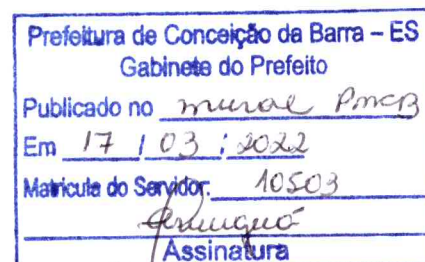 Prefeitura de Conceição da Barra – ES
Gabinete do Prefeito
Publicado no mural PMCB
Em 17 / 03 / 2022
Matricula do Servidor: 10503
Assinatura